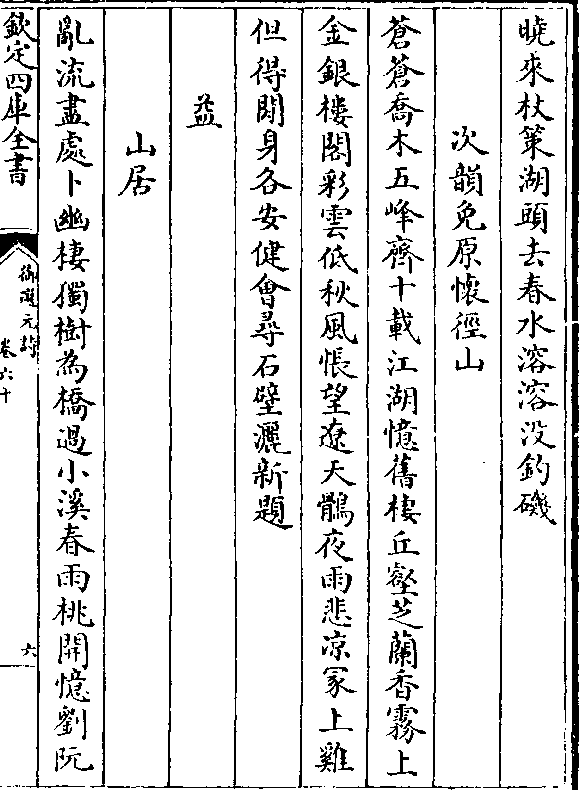 曉來杖策湖頭去春水溶溶没釣磯
次韻免原懷徑山
蒼蒼喬木五峰齊十載江湖憶舊棲丘壑芝蘭香霧上
金銀樓閣彩雲低秋風悵望遼天鶻夜雨悲凉冡上雞
但得閒身各安健會尋石壁灑新題
益
山居
亂流盡處卜幽棲獨樹為橋過小溪春雨桃開憶劉阮
欽定四庫全書
御選元詩
卷六十
六